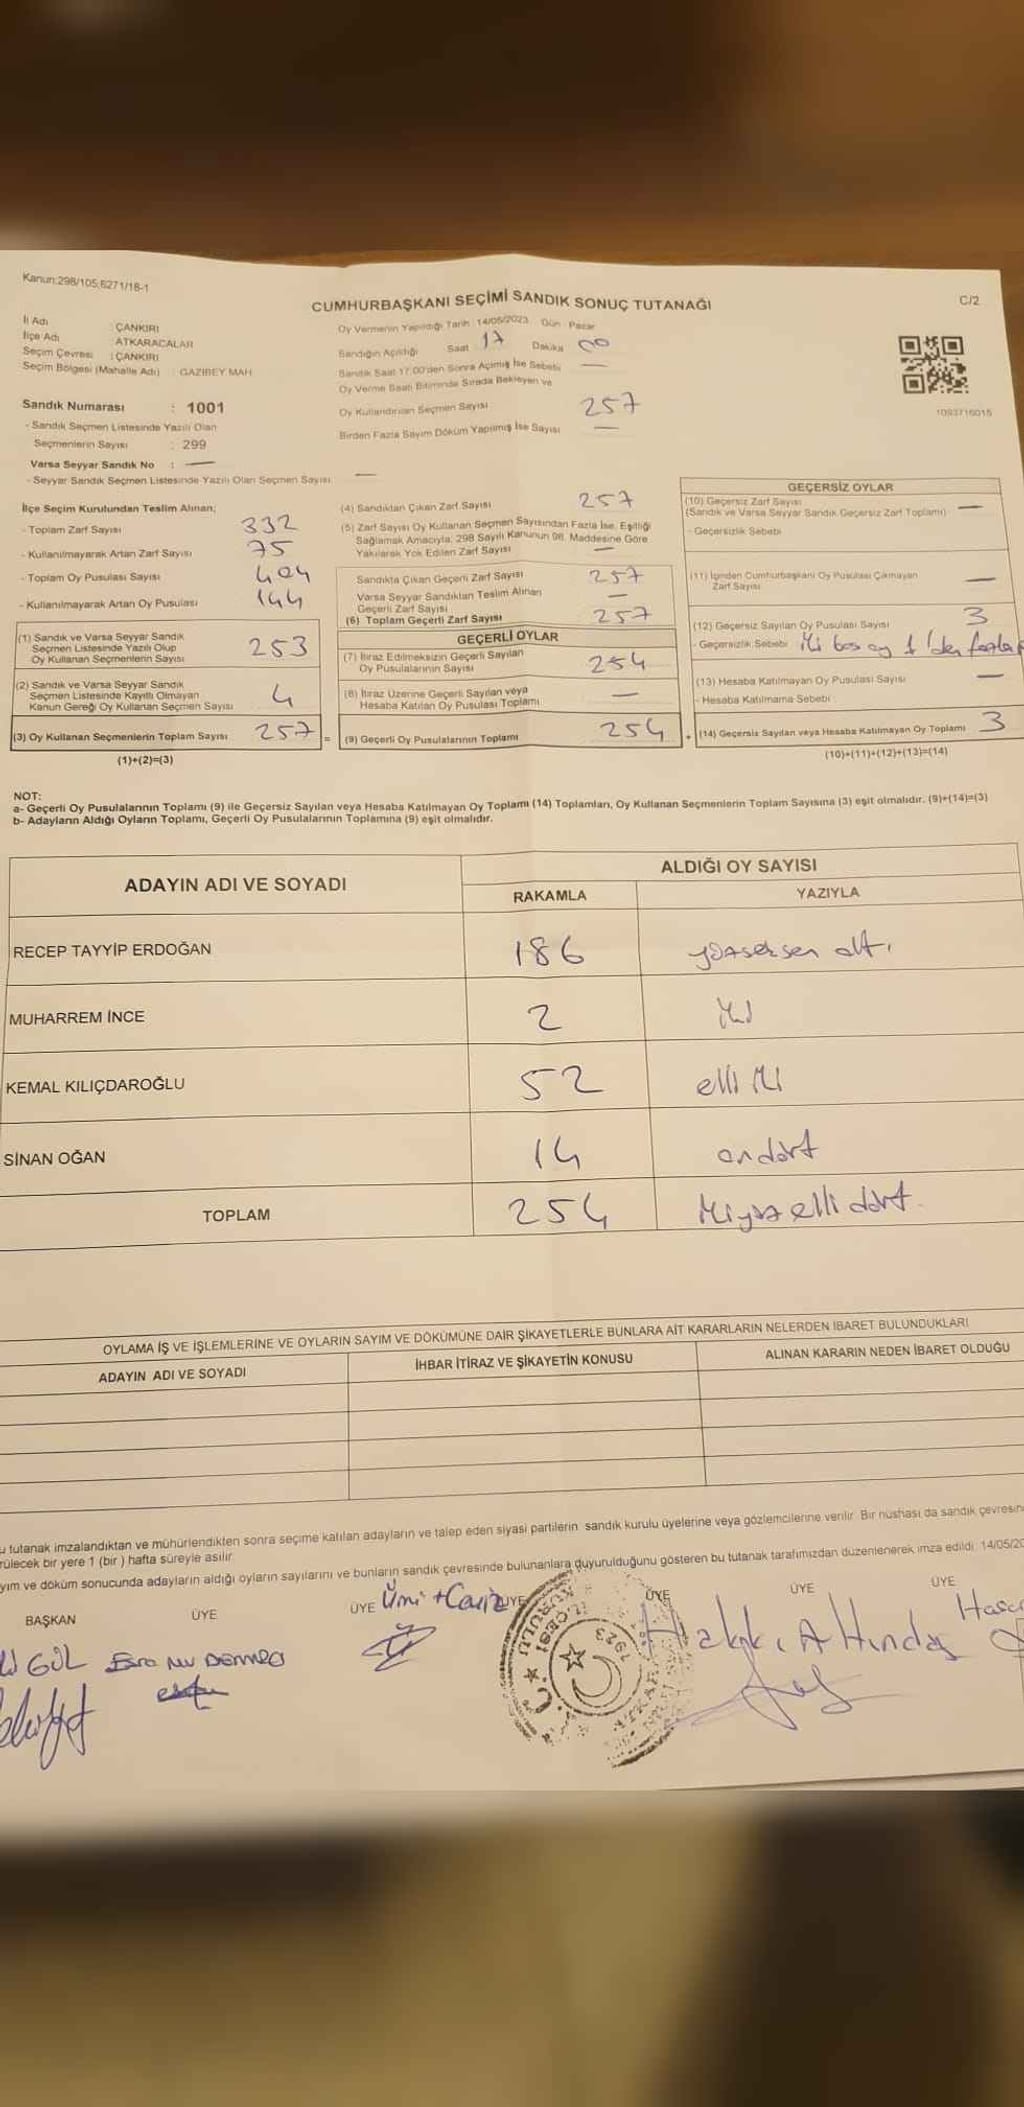 Kanun:298/105;6271/18-1
CUMHURBAŞKANI SEÇİMİ SANDIK SONUÇ TUTANAĞI
C/2
İl Adı : ÇANKIRI
İlçe Adı : ATKARACALAR
Seçim Çevresi : ÇANKIRI
Seçim Bölgesi (Mahalle Adı) : GAZİBEY MAH
Sandık Numarası : 1001
- Sandık Seçmen Listesinde Yazılı Olan
Seçmenlerin Sayısı : 299
Varsa Seyyar Sandık No : —
- Seyyar Sandık Seçmen Listesinde Yazılı Olan Seçmen Sayısı —
Oy Vermenin Yapıldığı Tarih 14/05/2023 Gün Pazar
Sandığın Açıldığı Saat 17 Dakika 00
Sandık Saat 17:00'den Sonra Açımış İse Sebebi —
Oy Verme Saati Bitiminde Sırada Bekleyen ve
Oy Kullandırılan Seçmen Sayısı 257
Birden Fazla Sayım Döküm Yapılmış İse Sayısı —
1093716015
İlçe Seçim Kurulundan Teslim Alınan;
- Toplam Zarf Sayısı 332
- Kullanılmayarak Artan Zarf Sayısı 75
- Toplam Oy Pusulası Sayısı 404
- Kullanılmayarak Artan Oy Pusulası 144
(1) Sandık ve Varsa Seyyar Sandık
Seçmen Listesinde Yazılı Olup
Oy Kullanan Seçmenlerin Sayısı 253
(2) Sandık ve Varsa Seyyar Sandık
Seçmen Listesinde Kayıtlı Olmayan
Kanun Gereği Oy Kullanan Seçmen Sayısı 4
(3) Oy Kullanan Seçmenlerin Toplam Sayısı 257 =
(1)+(2)=(3)
(4) Sandıktan Çıkan Zarf Sayısı 257
(5) Zarf Sayısı Oy Kullanan Seçmen Sayısından Fazla İse, Eşitliği
Sağlamak Amacıyla, 298 Sayılı Kanunun 98. Maddesine Göre
Yakılarak Yok Edilen Zarf Sayısı —
Sandıkta Çıkan Geçerli Zarf Sayısı 257
Varsa Seyyar Sandıktan Teslim Alınan
Geçerli Zarf Sayısı —
(6) Toplam Geçerli Zarf Sayısı 257
GEÇERLİ OYLAR
(7) İtiraz Edilmeksizin Geçerli Sayılan
Oy Pusulalarının Sayısı 254
(8) İtiraz Üzerine Geçerli Sayılan veya
Hesaba Katılan Oy Pusulası Toplamı —
(9) Geçerli Oy Pusulalarının Toplamı 254 +
GEÇERSİZ OYLAR
(10) Geçersiz Zarf Sayısı
(Sandık ve Varsa Seyyar Sandık Geçersiz Zarf Toplamı) —
- Geçersizlik Sebebi
(11) İçinden Cumhurbaşkanı Oy Pusulası Çıkmayan
Zarf Sayısı —
(12) Geçersiz Sayılan Oy Pusulası Sayısı 3
- Geçersizlik Sebebi İki boş oy 1'den fazla
(13) Hesaba Katılmayan Oy Pusulası Sayısı —
- Hesaba Katılmama Sebebi
(14) Geçersiz Sayılan veya Hesaba Katılmayan Oy Toplamı 3
(10)+(11)+(12)+(13)=(14)
NOT:
a- Geçerli Oy Pusulalarının Toplamı (9) ile Geçersiz Sayılan veya Hesaba Katılmayan Oy Toplamı (14) Toplamları, Oy Kullanan Seçmenlerin Toplam Sayısına (3) eşit olmalıdır. (9)+(14)=(3)
b- Adayların Aldığı Oyların Toplamı, Geçerli Oy Pusulalarının Toplamına (9) eşit olmalıdır.
ADAYIN ADI VE SOYADI
ALDIĞI OY SAYISI
RAKAMLA YAZIYLA
RECEP TAYYİP ERDOĞAN 186 yüzseksen altı
MUHARREM İNCE 2 iki
KEMAL KILIÇDAROĞLU 52 elli iki
SİNAN OĞAN 14 ondört
TOPLAM 254 ikiyüz elli dört
OYLAMA İŞ VE İŞLEMLERİNE VE OYLARIN SAYIM VE DÖKÜMÜNE DAİR ŞİKAYETLERLE BUNLARA AİT KARARLARIN NELERDEN İBARET BULUNDUKLARI
ADAYIN ADI VE SOYADI İHBAR İTİRAZ VE ŞİKAYETİN KONUSU ALINAN KARARIN NEDEN İBARET OLDUĞU
u tutanak imzalandıktan ve mühürlendikten sonra seçime katılan adayların ve talep eden siyasi partilerin sandık kurulu üyelerine veya gözlemcilerine verilir. Bir nüshası da sandık çevresin
rülecek bir yere 1 (bir ) hafta süreyle asılır.
yım ve döküm sonucunda adayların aldığı oyların sayılarını ve bunların sandık çevresinde bulunanlara duyurulduğunu gösteren bu tutanak tarafımızdan düzenlenerek imza edildi. 14/05/20
BAŞKAN ÜYE ÜYE ÜYE ÜYE ÜYE ÜYE
GÜL
Ümit
Hakkı Altındaş
1923